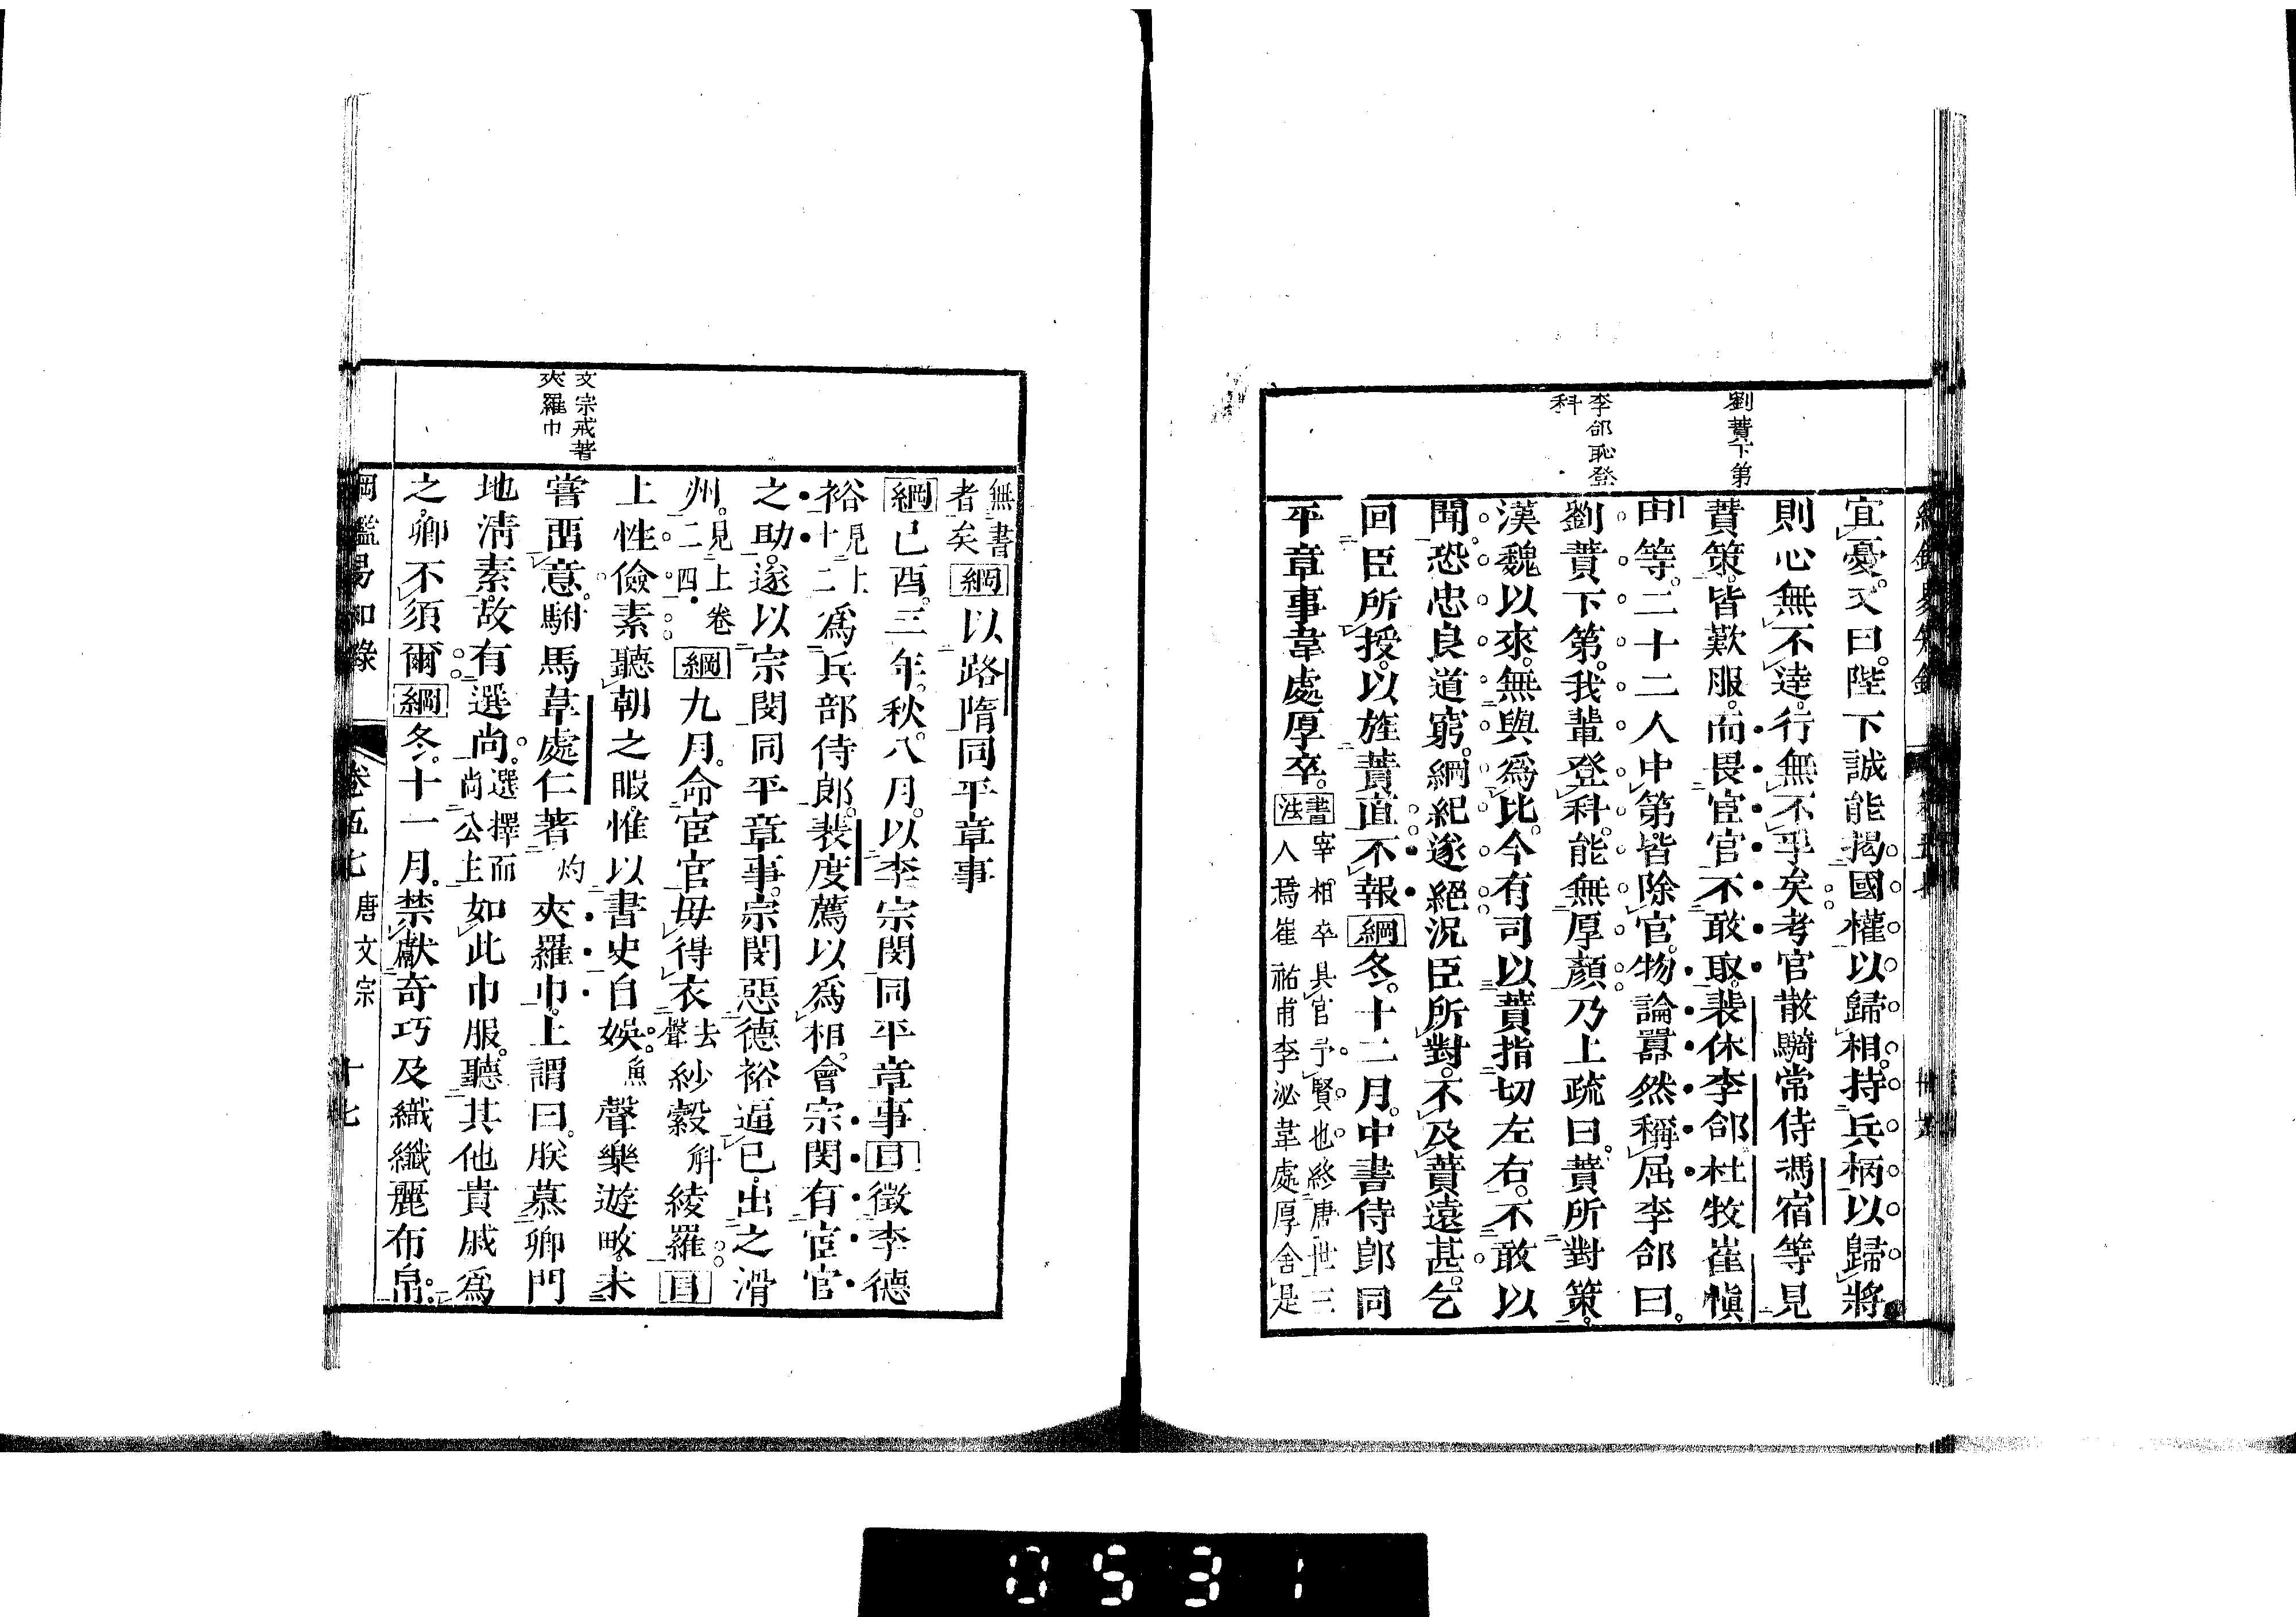 劉蕡下第
李郃恥登
科
宜憂。又曰。陛下誠能揭國權以歸相。持兵柄以歸將
則心無不達。行無不孚矣考官散騎常侍馮宿等見
蕡策。皆歎服。而畏宦官不敢取。裴休李郃杜牧崔愼
由等。二十二人中第。皆除官。物論囂然稱屈李郃曰。
劉蕡下第。我輩登科。能無厚顏乃上疏曰。蕡所對策。
漢魏以來。無與爲比。今有司以蕡指切左右。不敢以
聞。恐忠良道窮。綱紀遂絕況臣所對。不及蕡遠甚。乞
回臣所授。以旌蕡直不報綱冬。十二月。中書侍郎同
平章事韋處厚卒。書法宰相卒具官予賢也終唐世三人焉崔祐甫李泌韋處厚舍是
文宗戒著
夾羅巾
無書者矣綱以路隋同平章事
綱己酉。三年。秋。八月。以李宗閔同平章事目徵李德
裕見上十二爲兵部侍郎。裴度薦以爲相。會宗閔有宦官
之助。遂以宗閔同平章事。宗閔惡德裕逼己。出之滑
州。見上卷二四綱九月。命宦官毋得衣去聲紗縠斛綾羅目
上性儉素聽朝之暇。惟以書史自娛。魚聲樂遊畋。未
嘗畱意。駙馬韋處仁著灼夾羅巾。上謂曰。朕慕卿門
地清素。故有選尚。選擇而尚公主如此巾服。聽其他貴戚爲
之。卿不須爾綱冬。十一月。禁獻奇巧及織纖麗布帛。
綱鑑易知錄 卷五七 唐文宗 十七
0531